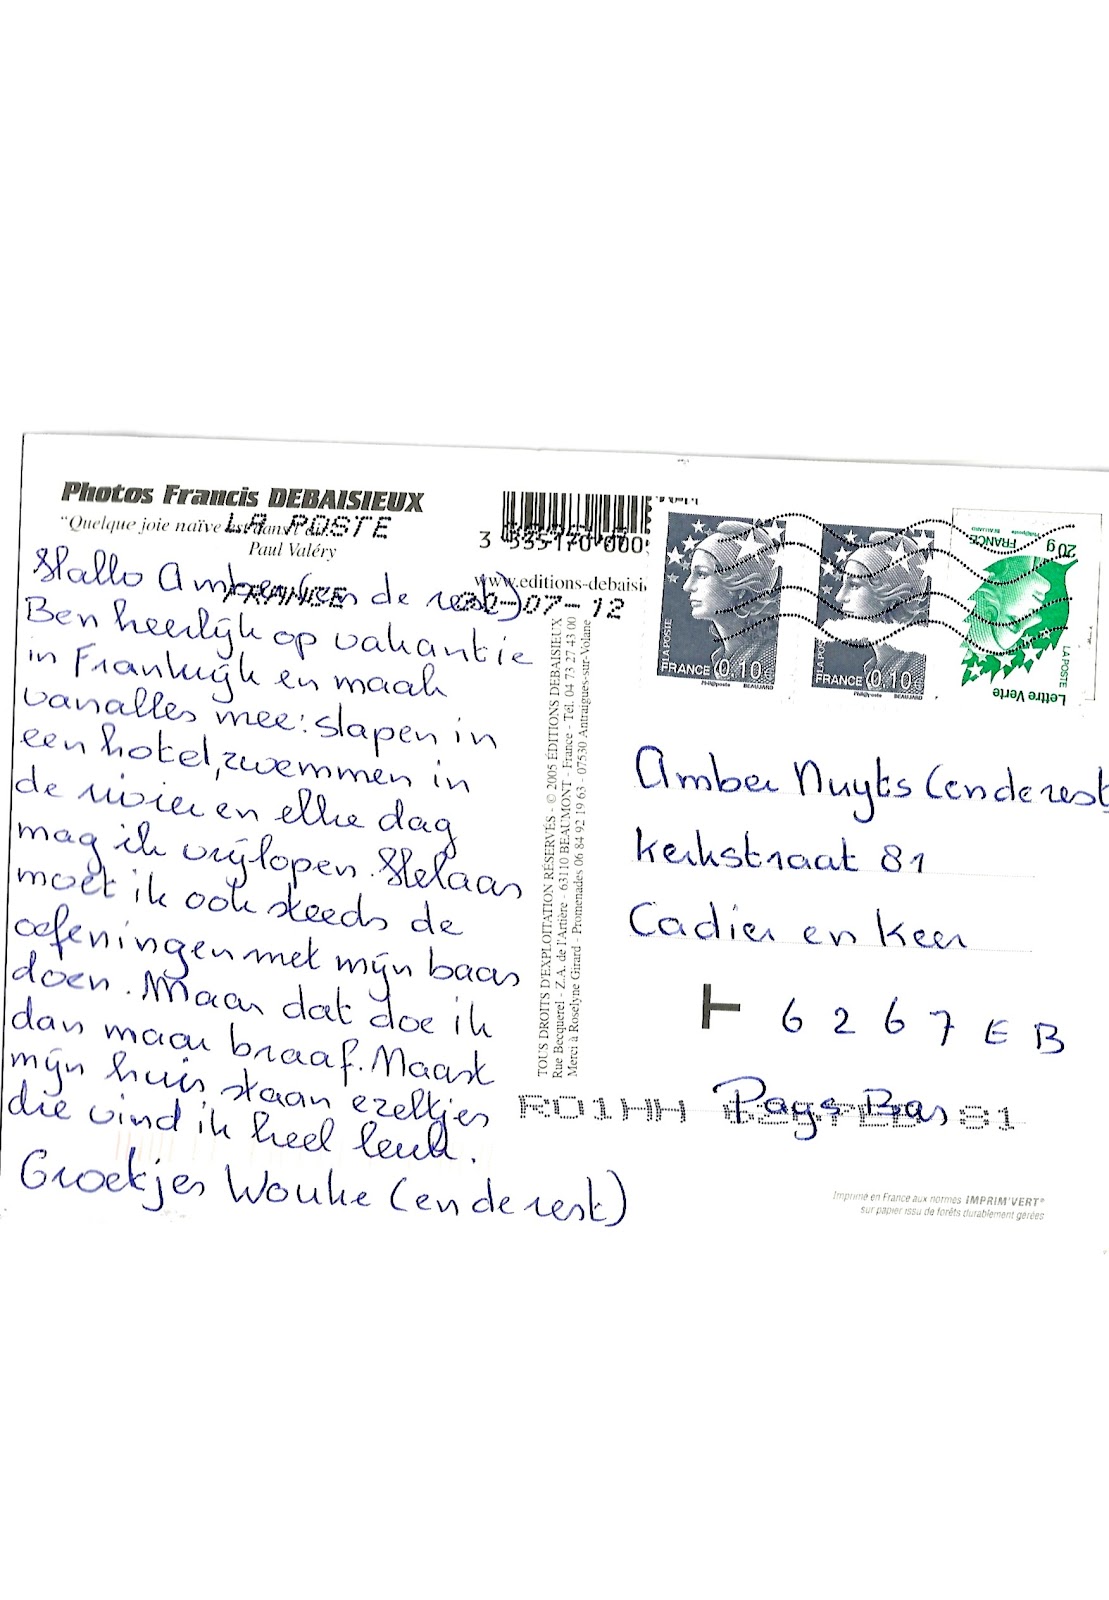 Photos Francis DEBAISIEUX
"Quelque joie naïve est dans
Paul Valéry
LA POSTE
FRANCE
-07-12
3 535170 000
www.editions-debaisi
Hallo Amber (en de rest)
Ben heerlijk op vakantie
in Frankrijk en maak
vanalles mee: slapen in
een hotel, zwemmen in
de rivier en elke dag
mag ik vrijlopen. Helaas
moet ik ook steeds de
oefeningen met mijn baas
doen. Maar dat doe ik
dan maar braaf. Naast
mijn huis staan ezeltjes
die vind ik heel leuk.
Groetjes Wouke (en de rest)
TOUS DROITS D'EXPLOITATION RÉSERVÉS - © 2005 ÉDITIONS DEBAISIEUX
Rue Becquerel - Z.A. de l'Artière - 63110 BEAUMONT - France - Tél. 04 73 27 43 00
Merci à Roselyne Girard - Promenades 06 84 92 19 63 - 07530 Antraigues-sur-Volane
LA POSTE
FRANCE 0.10€
Phil@poste BEAUJARD
LA POS
FRANCE 0.10€
Phil@poste BEAUJARD
20g FRANCE
BEAUJARD
LA POSTE
Lettre Verte
Amber Nuyts (en de rest
Kerkstraat 81
Cadier en Keer
6267 EB
Pays-Bas
RO1HH 81
Imprimé en France aux normes IMPRIM'VERT®
sur papier issu de forêts durablement gérées